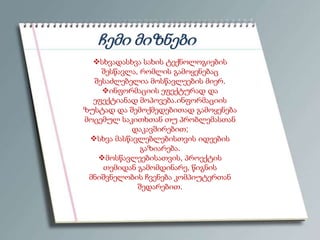 ჩემი მიზნები
❖სხვადასხვა სახის ტექნოლოგიების
შესწავლა, რომლის გამოყენებაც
შესაძლებელია მოსწავლეების მიერ.
❖ინფორმაციის ეფექტურად და
ეფექტიანად მოპოვება.ინფორმაციის
ზუსტად და შემოქმედებითად გამოყენება
მოცემულ საკითხთან თუ პრობლემასთან
დაკავშირებით;
❖სხვა მასწავლებლებისთვის იდეების
გაზიარება.
❖მოსწავლეებისათვის, პროექტის
თემიდან გამომდინარე, წიგნის
მნიშვნელობის ჩვენება კომპიუტერთან
შედარებით.